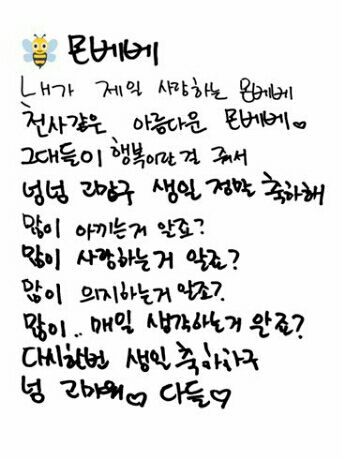 🐝 몬베베
내가 제일 사랑하는 몬베베
천사같은 아름다운 몬베베♡
그대들이 행복이란 걸 줘서
넘넘 고맙구 생일 정말 축하해
많이 아끼는거 알죠?
많이 사랑하는거 알죠?
많이 의지하는거 알죠?
많이.. 매일 생각하는거 알죠?
다시한번 생일 축하하구
넘 고마워♡ 다들♡